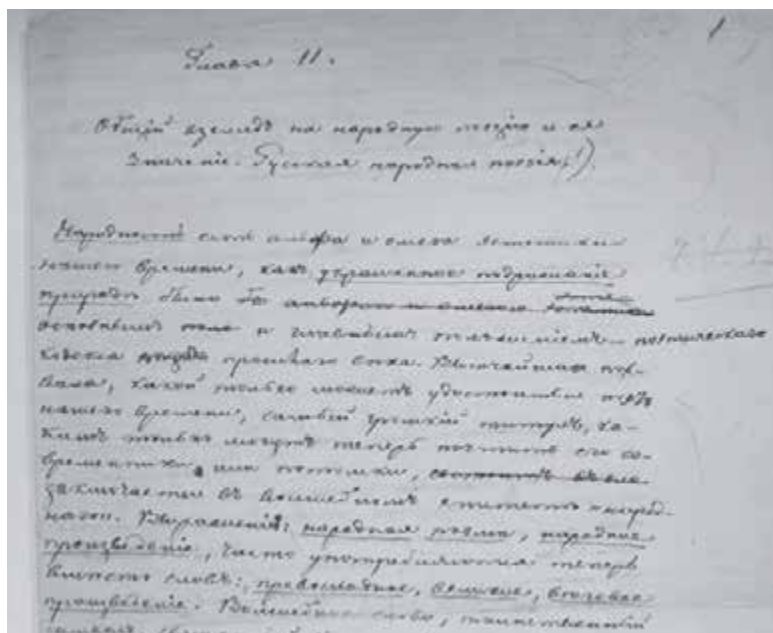 1
Глава II.
Общій взглядъ на народную поэзію и ея
значеніе. Русская народная поэзія.
Народность есть альфа и омега эстетики
нашего времени, какъ украшенное подражаніе
природѣ было бы альфою и омегою
основнымъ и главнымъ положеніемъ поэтическаго
кодекса прошлаго вѣка. Величайшая пох-
вала, какой только можетъ удостоиться поэтъ
нашего времени, самый громкій титулъ, ка-
кимъ только могутъ теперь почтить его со-
временники или потомки,
заключается въ волшебномъ эпитетѣ народ-
наго. Выраженія: народная поэма, народное
произведеніе, часто употребляются теперь
вмѣсто словъ: превосходное, великое, вѣковое
произведеніе. Волшебное слово, таинственный
символъ,